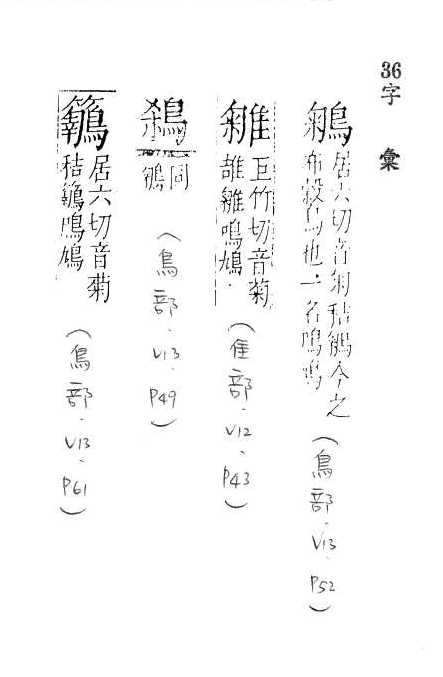 36字 彙
鵴
居六切音匊秸鵴今之
布穀鳥也一名鳴鳩
(鳥部.V13.P52)
巨竹切音菊
鳴鳩
(隹部.V12、P43)
同
鵴
(鳥部.V13、P49)
居六切音菊
秸鳴鳩
(鳥部、V13、P61)